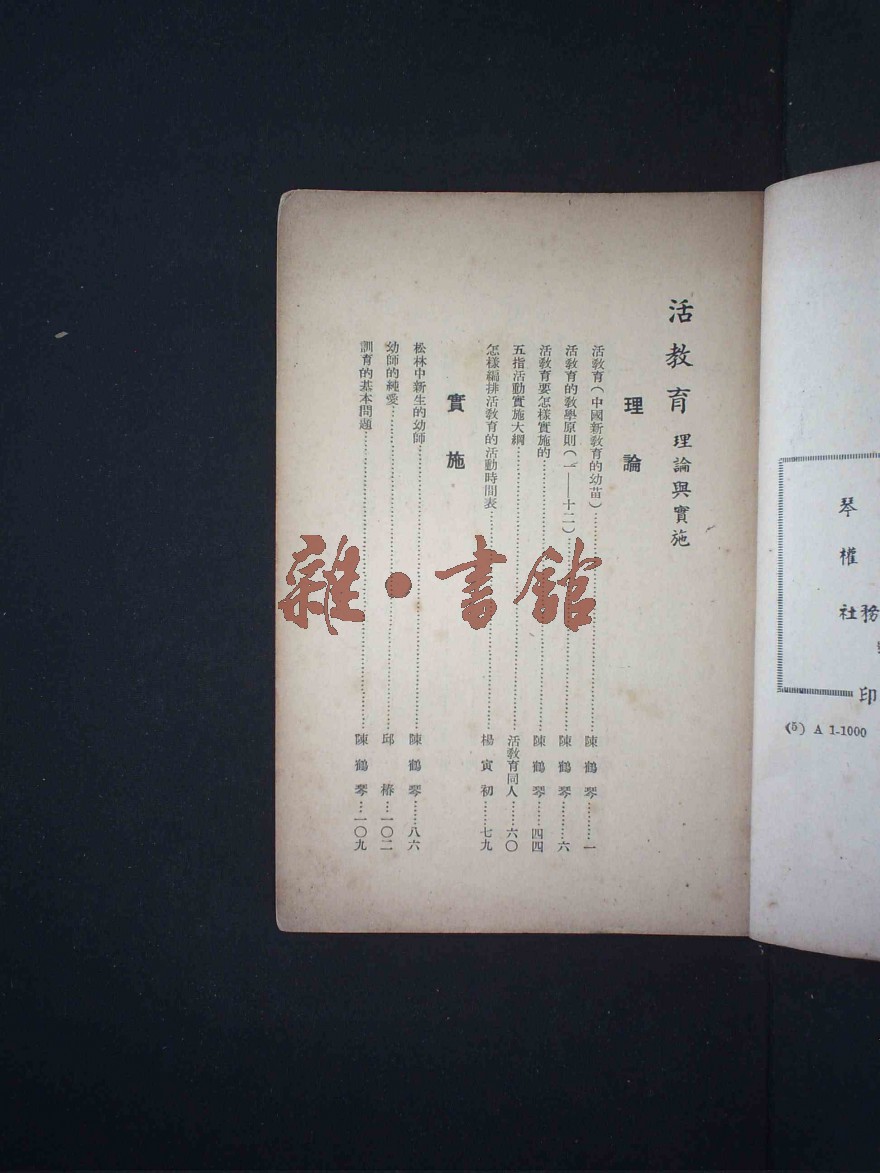 琴
權
社
務
印
《5》 A 1-1000
活教育 理論與實施
理論
活教育(中國新教育的幼苗)……陳鶴琴……一
活教育的教學原則(一——十二)……陳鶴琴……六
活教育要怎樣實施的……陳鶴琴……四四
五指活動實施大綱……活教育同人……六〇
怎樣編排活教育的活動時間表……楊寅初……七九
實施
松林中新生的幼師……陳鶴琴……八六
幼師的純愛……邱椿……一〇二
訓育的基本問題……陳鶴琴……一〇九
雜·書館